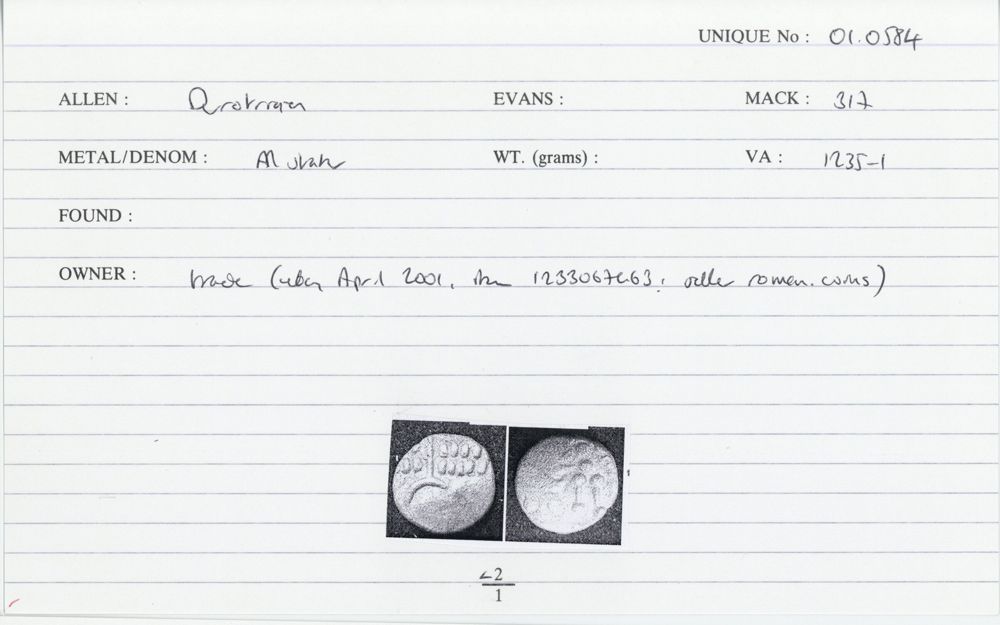 UNIQUE No : 01.0584
ALLEN : Durotrigan EVANS : MACK : 317
METAL/DENOM : AR stater WT. (grams) : VA : 1235-1
FOUND :
OWNER : trade (ebay April 2001, item 1233067463, seller roman.coins)
<2
1